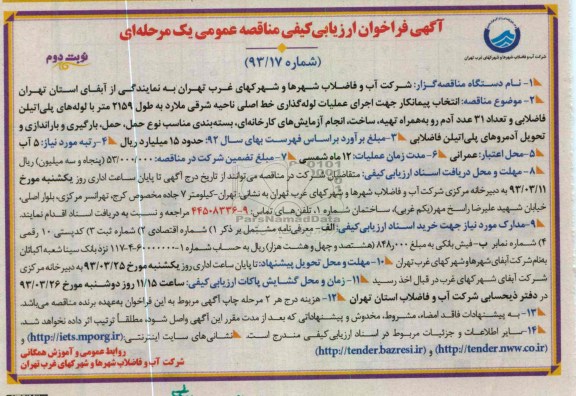 آگهی فراخوان ارزیابی کیفی مناقصه عمومی یک مرحله‌ای
(شماره ۹۳/۱۷)
نوبت دوم
شرکت آب و فاضلاب شهرها و شهرکهای غرب تهران
۱- نام دستگاه مناقصه‌گزار: شرکت آب و فاضلاب شهرها و شهرکهای غرب تهران به نمایندگی از آبفای استان تهران
۲- موضوع مناقصه: انتخاب پیمانکار جهت اجرای عملیات لوله‌گذاری خط اصلی ناحیه شرقی ملارد به طول ۲۱۵۹ متر با لوله‌های پلی‌اتیلن
فاضلابی و تعداد ۳۱ عدد آدم رو به‌همراه تهیه، ساخت، انجام آزمایش‌های کارخانه‌ای، بسته‌بندی مناسب نوع حمل، حمل، بارگیری و باراندازی و
تحویل آدمروهای پلی‌اتیلن فاضلابی ۳- مبلغ برآورد براساس فهرست بهای سال ۹۲: حدود ۱۵ میلیارد ریال ۴- رتبه مورد نیاز: ۵ آب
۵- محل اعتبار: عمرانی ۶- مدت زمان عملیات: ۱۲ ماه شمسی ۷- مبلغ تضمین شرکت در مناقصه: ۵۳/۰۰۰/۰۰۰ (پنجاه و سه میلیون) ریال
۸- مهلت و محل دریافت اسناد ارزیابی کیفی: متقاضیان شرکت در مناقصه می‌توانند از تاریخ درج آگهی تا پایان ساعت اداری روز یکشنبه مورخ
۹۳/۰۳/۱۱ به دبیرخانه مرکزی شرکت آب و فاضلاب شهرها و شهرکهای غرب تهران به نشانی: تهران-کیلومتر ۷ جاده مخصوص کرج، تهرانسر مرکزی، بلوار اصلی،
خیابان شهید علیرضا راسخ مهر(یکم غربی)، ساختمان شماره ۱، تلفن‌های تماس: ۹-۴۴۵۰۸۳۳۶ مراجعه و نسبت به دریافت اسناد اقدام نمایند.
۹- مدارک مورد نیاز جهت خرید اسناد ارزیابی کیفی: الف- معرفی‌نامه مشتمل بر ذکر ۱) شماره اقتصادی ۲) شماره ثبت ۳) کدپستی ۱۰ رقمی
۴) شماره نمابر ب- فیش بانکی به مبلغ ۸۴۸/۰۰۰ (هشتصد و چهل و هشت هزار) ریال به حساب شماره ۱-۱۱۷-۴-۶۰۰۰۰۰۰ نزد بانک سینا شعبه اکباتان
به‌نام شرکت آبفای شهرها و شهرکهای غرب تهران ۱۰- مهلت و محل تحویل پیشنهاد: تا پایان ساعت اداری روز یکشنبه مورخ ۹۳/۰۳/۲۵ به دبیرخانه مرکزی
شرکت آبفای شهرکهای غرب در قبال اخذ رسید ۱۱- زمان و محل گشایش پاکات ارزیابی کیفی: ساعت ۱۱/۱۵ روز دوشنبه مورخ ۹۳/۰۳/۲۶
در دفتر ذیحسابی شرکت آب و فاضلاب استان تهران ۱۲- هزینه درج هر ۲ مرحله چاپ آگهی مربوط به این فراخوان به‌عهده برنده مناقصه می‌باشد.
۱۳- به پیشنهادات فاقد امضاء، مشروط، مخدوش و پیشنهاداتی که بعد از مدت مقرر این آگهی واصل شود مطلقاً ترتیب اثر داده نخواهد شد.
۱۴- سایر اطلاعات و جزئیات مربوط در اسناد ارزیابی کیفی مندرج است. نشانی‌های سایت اینترنتی: (http://iets.mporg.ir) و
(http://tender.nww.co.ir) و (http://tender.bazresi.ir)
روابط عمومی و آموزش همگانی
شرکت آب و فاضلاب شهرها و شهرکهای غرب تهران
ParsNamadData